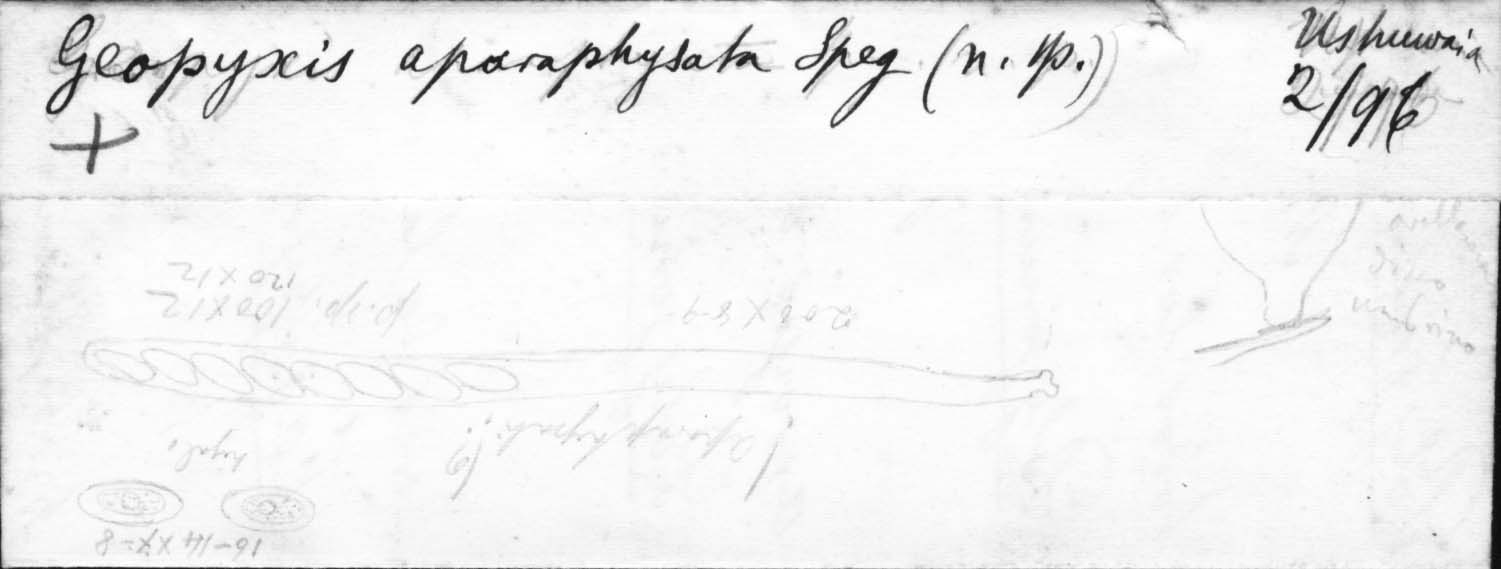 Geopyxis aparaphysata Speg (n. sp.)
Ushuwaia
2/96
+
120 X 12
p. sp. 100 X 12
200 X 8-9
umbrino
(Aparaphysati!?)
hyal.
16-14 X 7-8